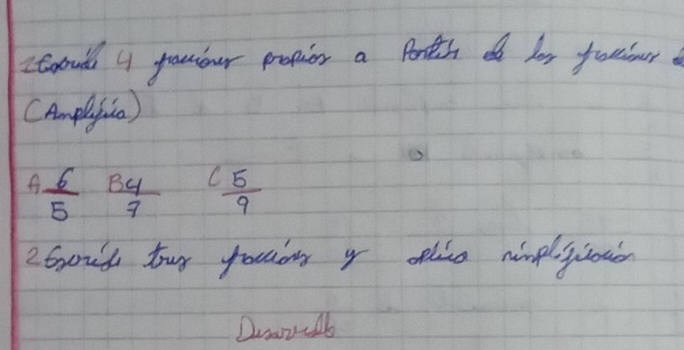 1 Escribe 4 fracciones propias a Partir de las fracciones
(Amplifica)
A 6/5 B 4/7 C 5/9
2 Escribe tres fracciones y aplica simplificación
Desarrollo